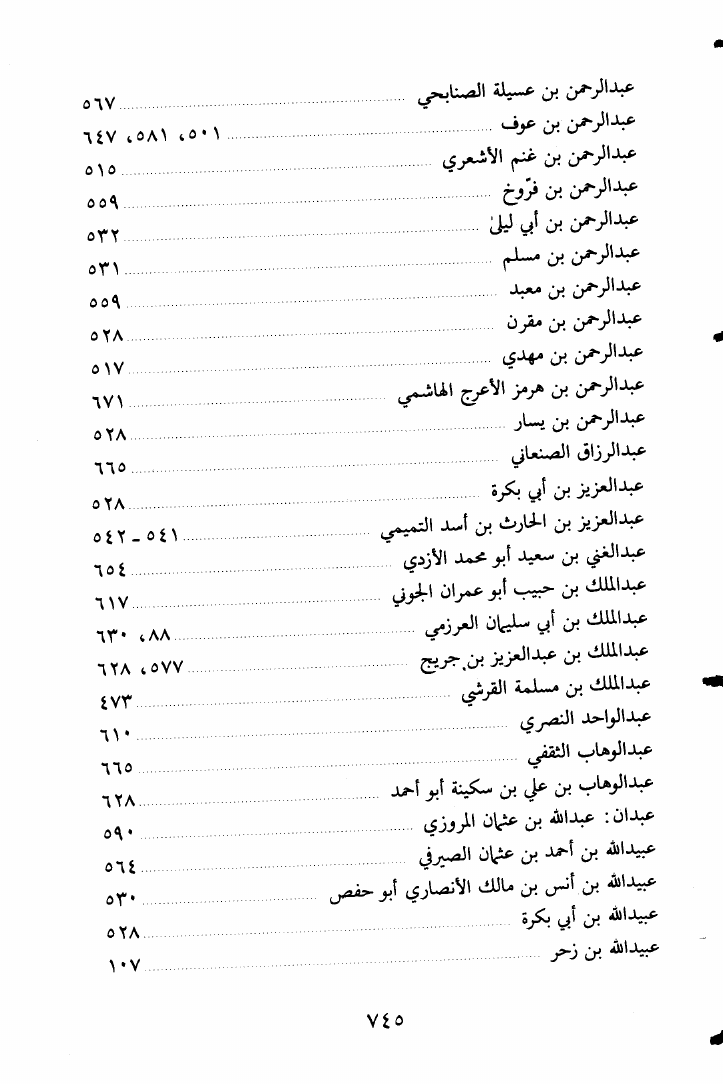 عبدالرحمن بن عسيلة الصنابحي ........ ٥٦٧
عبدالرحمن بن عوف ........ ٥٠١، ٥٨١، ٦٤٧
عبدالرحمن بن غنم الأشعري ........ ٥١٥
عبدالرحمن بن فرّوخ ........ ٥٥٩
عبدالرحمن بن أبي ليلىٰ ........ ٥٣٢
عبدالرحمن بن مسلم ........ ٥٣١
عبدالرحمن بن معبد ........ ٥٥٩
عبدالرحمن بن مقرن ........ ٥٢٨
عبدالرحمن بن مهدي ........ ٥١٧
عبدالرحمن بن هرمز الأعرج الهاشمي ........ ٦٧١
عبدالرحمن بن يسار ........ ٥٢٨
عبدالرزاق الصنعاني ........ ٦٦٥
عبدالعزيز بن أبي بكرة ........ ٥٢٨
عبدالعزيز بن الحارث بن أسد التميمي ........ ٥٤١ ـ ٥٤٢
عبدالغني بن سعيد أبو محمد الأزدي ........ ٦٥٤
عبدالملك بن حبيب أبو عمران الجوني ........ ٦١٧
عبدالملك بن أبي سليمان العرزمي ........ ٨٨، ٦٣٠
عبدالملك بن عبدالعزيز بن جريج ........ ٥٧٧، ٦٢٨
عبدالملك بن مسلمة القرشي ........ ٤٧٣
عبدالواحد النصري ........ ٦١٠
عبدالوهاب الثقفي ........ ٦٦٥
عبدالوهاب بن علي بن سكينة أبو أحمد ........ ٦٢٨
عبدان: عبدالله بن عثمان المروزي ........ ٥٩٠
عبيدالله بن أحمد بن عثمان الصيرفي ........ ٥٦٤
عبيدالله بن أنس بن مالك الأنصاري أبو حفص ........ ٥٣٠
عبيدالله بن أبي بكرة ........ ٥٢٨
عبيدالله بن زحر ........ ١٠٧
٧٤٥